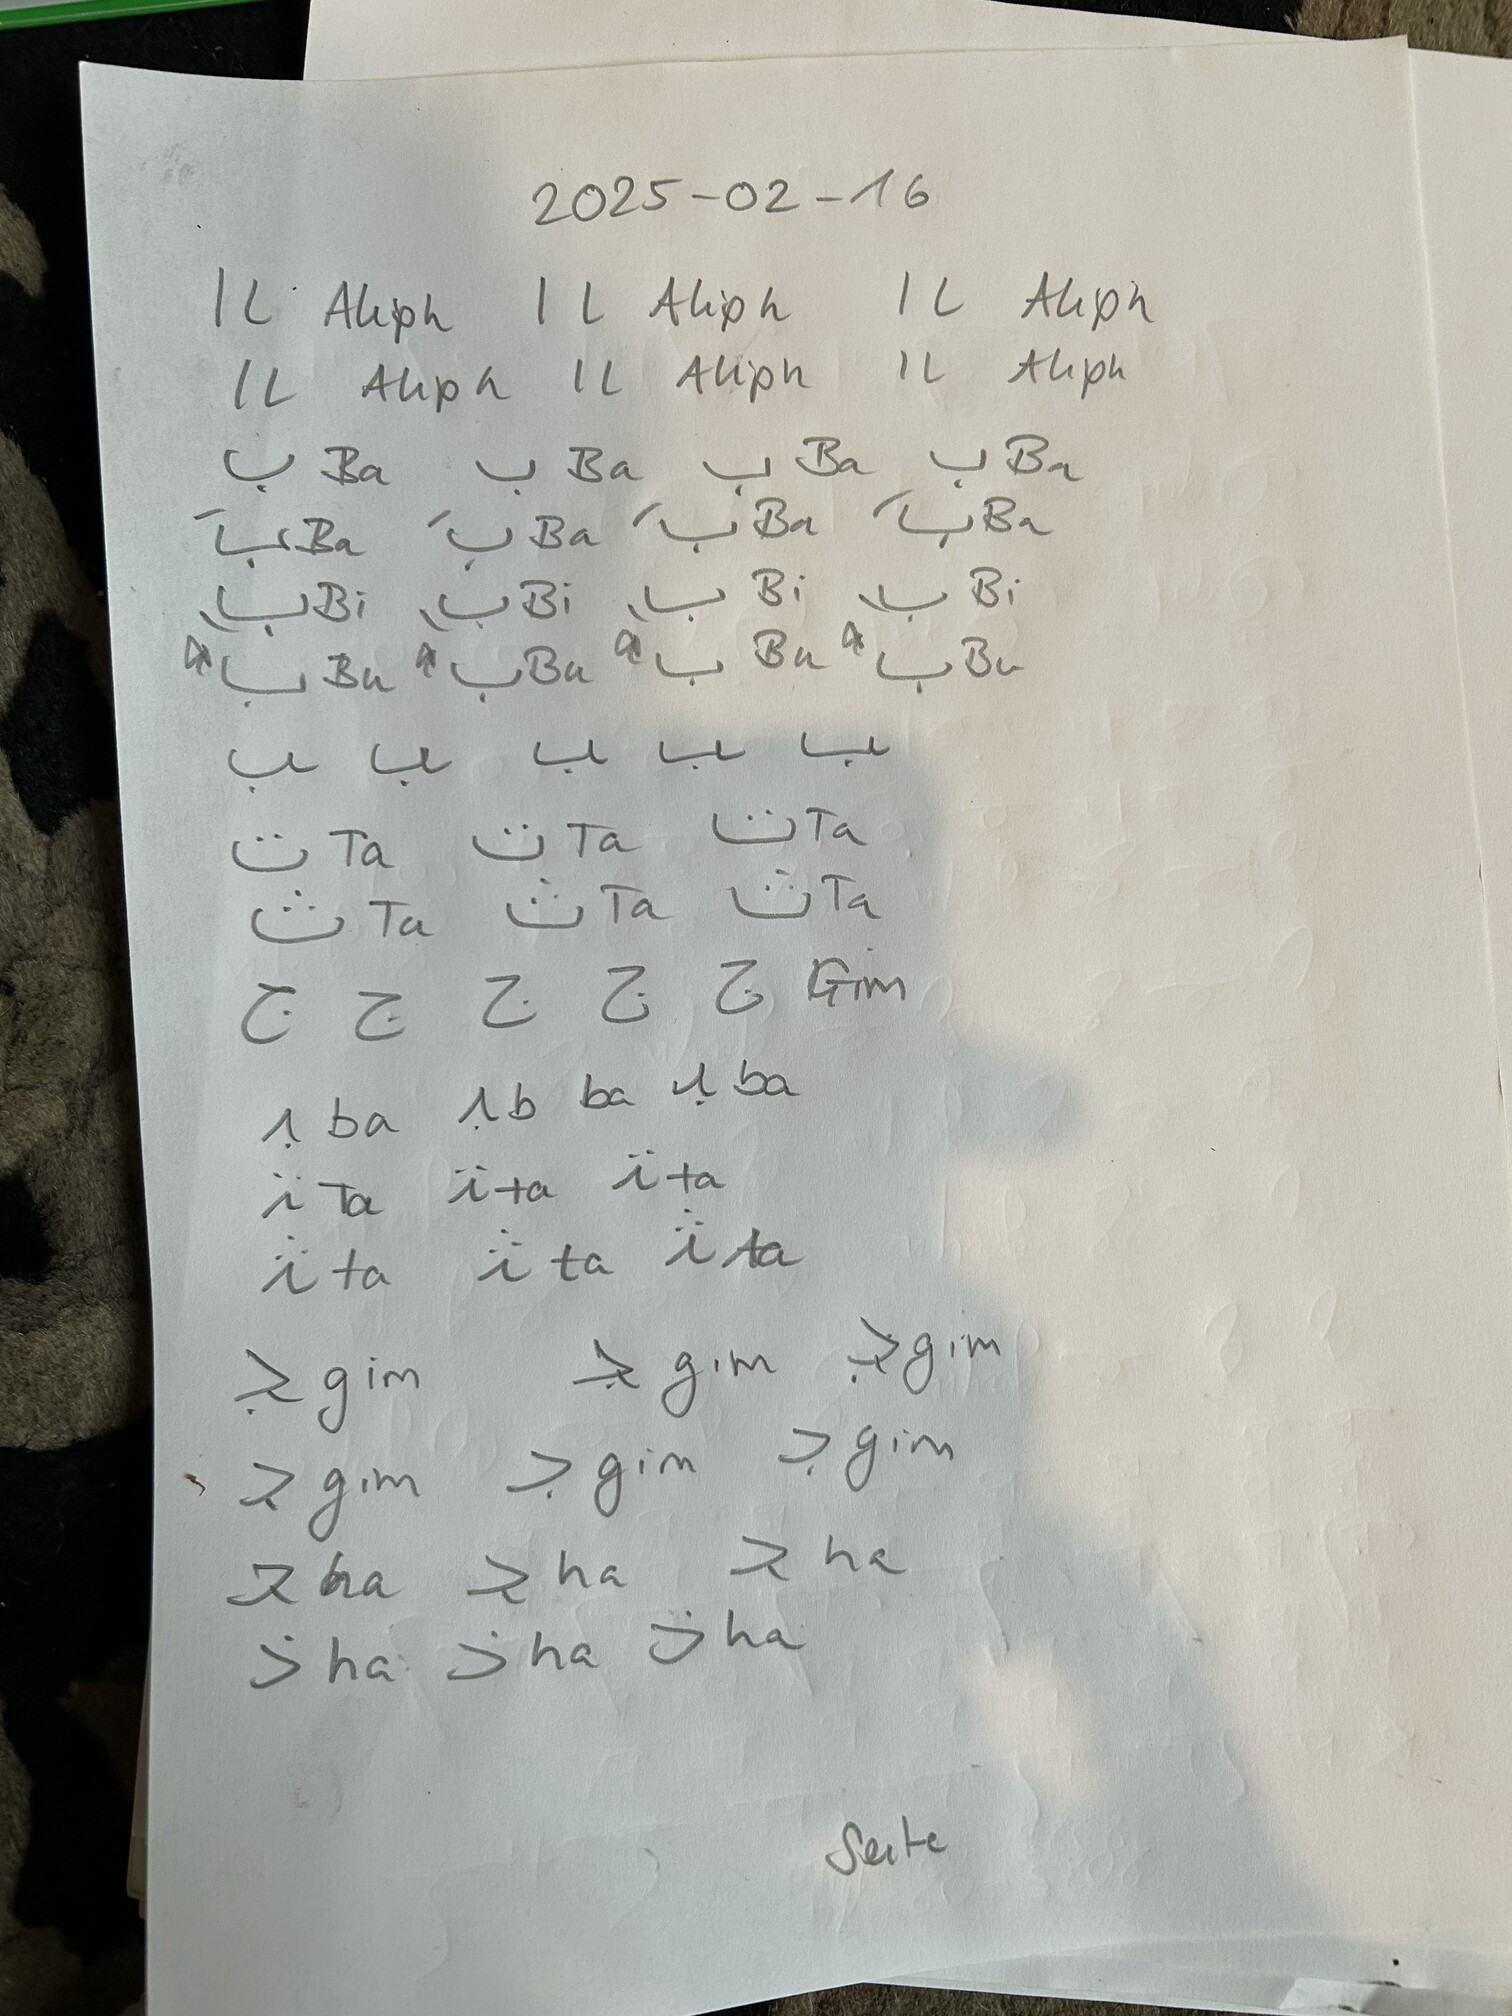 2025-02-16
ا L Aliph ا L Aliph ا L Aliph
ا L Aliph ا L Aliph ا L Aliph
ب Ba ب Ba ب Ba ب Ba
بَ Ba بَ Ba بَ Ba بَ Ba
بِ Bi بِ Bi بِ Bi بِ Bi
بُ Bu بُ Bu بُ Bu بُ Bu
ب ب ب ب ب
ت Ta ت Ta ت Ta
ث Ta ث Ta ث Ta
ج ج ج ج ج Gim
ﺒ ba ﺒ b ba ﺒ ba
ﺘ Ta ﺘ ta ﺘ ta
ﺜ ta ﺜ ta ﺜ ta
ﺠ gim ﺠ gim ﺠ gim
ﺟ gim ﺟ gim ﺟ gim
ﺣ ha ﺣ ha ﺣ ha
ﺧ ha ﺧ ha ﺧ ha
Seite